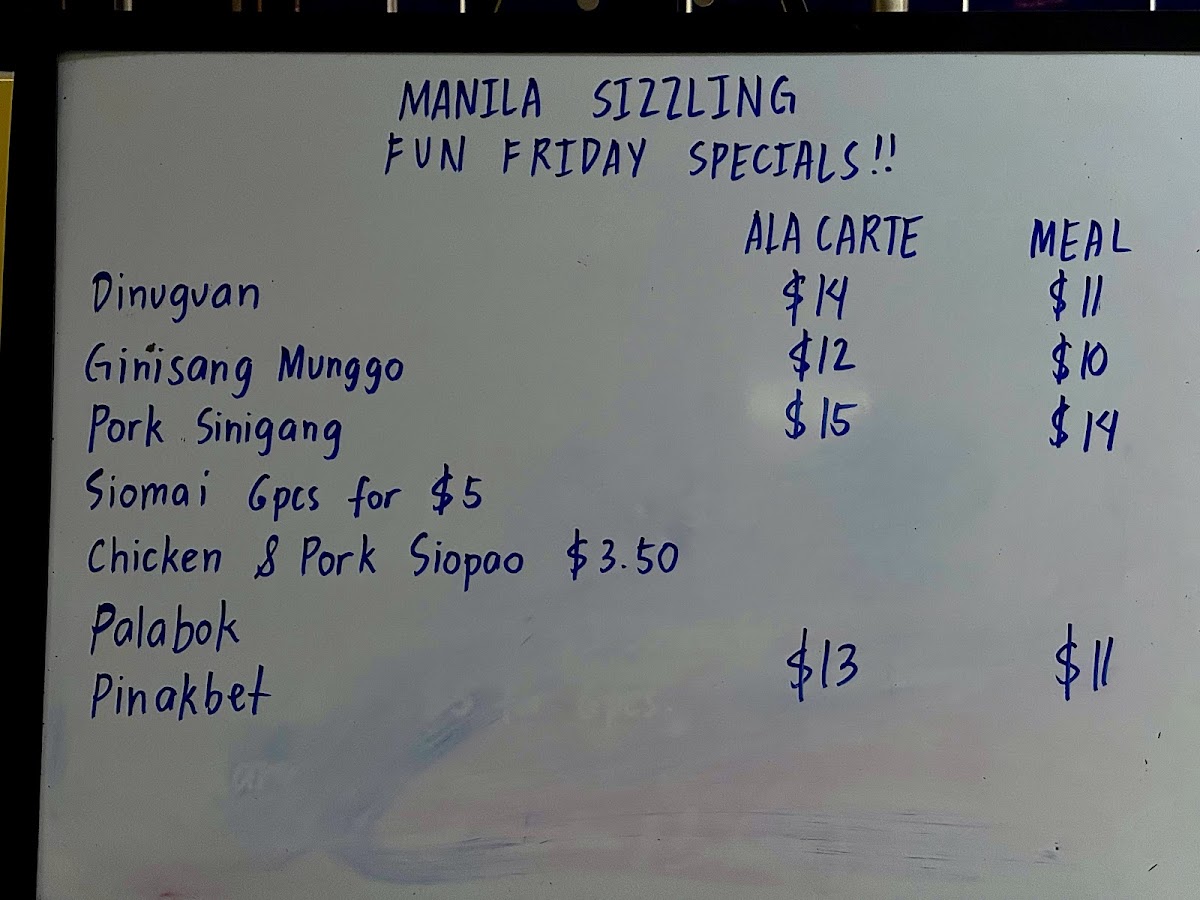 MANILA SIZZLING
FUN FRIDAY SPECIALS!!
ALA CARTE MEAL
Dinuguan $14 $11
Ginisang Munggo $12 $10
Pork Sinigang $15 $14
Siomai 6pcs for $5
Chicken & Pork Siopao $3.50
Palabok
Pinakbet $13 $11